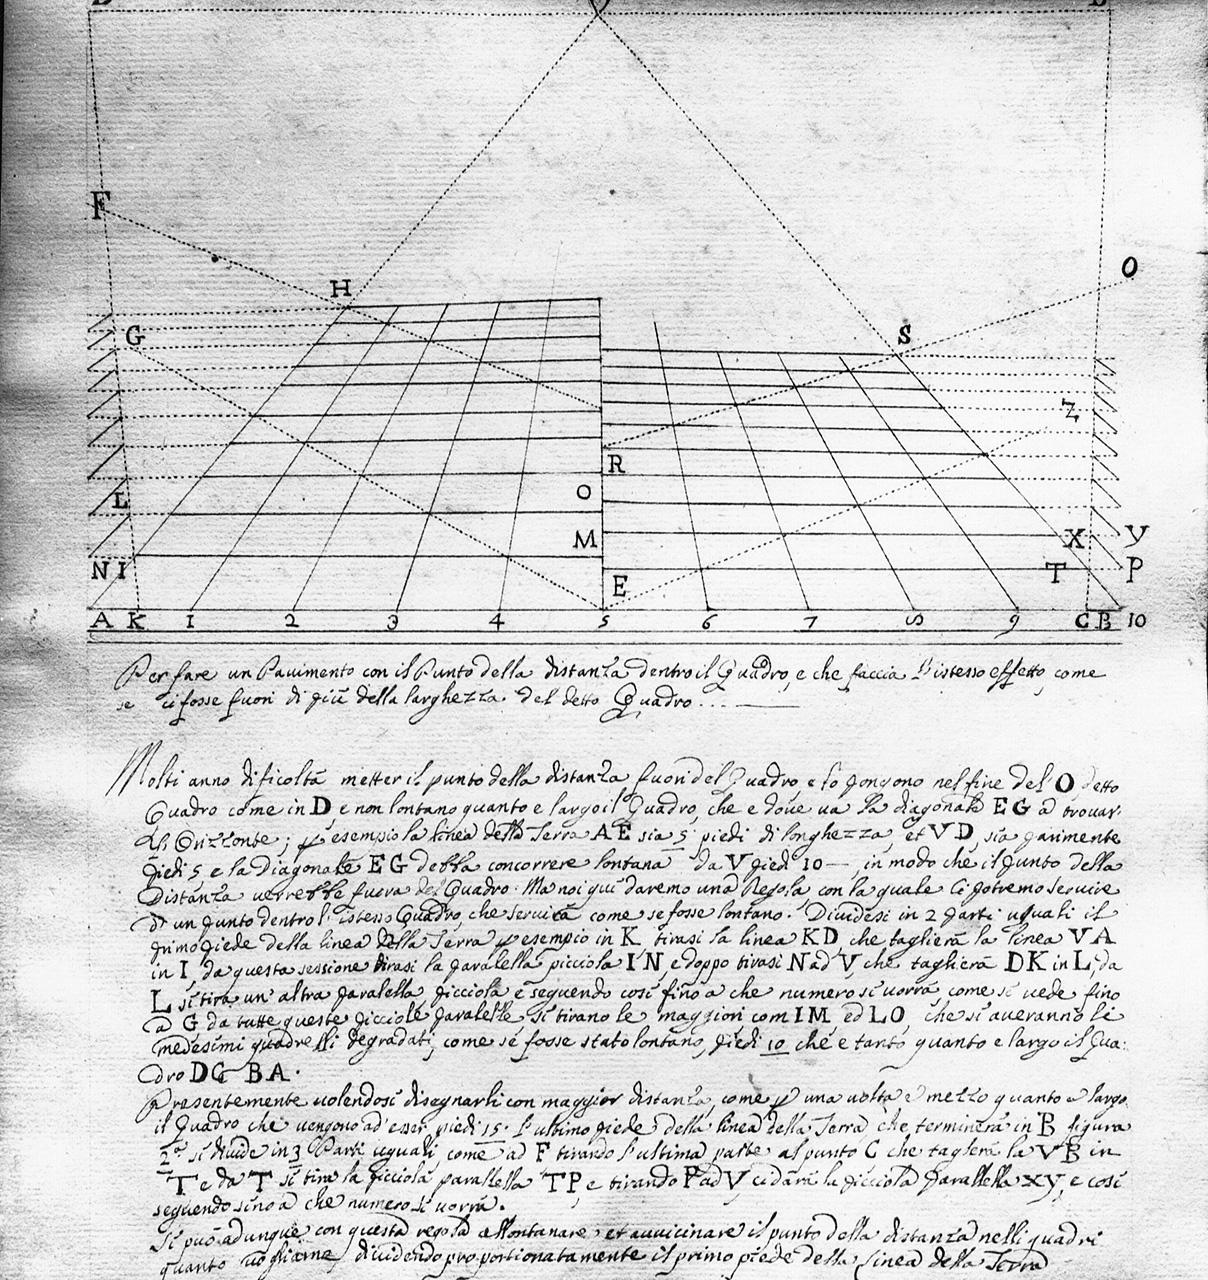 D V D
F
O
H
G S
Z
R
L O
M X Y
N I E T P
A K 1 2 3 4 5 6 7 8 9 C B 10
Per fare un Pavimento con il Punto della distanza dentro il Quadro, e che faccia l'istesso effetto, come
se ci fosse fuori di più della larghezza del detto Quadro
Molti anno dificoltà metter il punto della distanza fuori del Quadro e lo pongono nel fine del O detto
Quadro come in D e non lontano quanto e largo il Quadro, che e dove va la diagonale EG a trovar
l'Orizzonte; p esempio la linea della Terra AE sia 5 piedi di longhezza et VD sia parimente
piedi 5 e la Diagonale EG debba concorrere lontana da V piedi 10 in modo che il punto della
Distanza verrebbe fuora del Quadro. Ma noi qui daremo una Regola, con la quale Ci potremo servire
d'un punto dentro l'istesso Quadro, che servirà come se fosse lontano. Dividesi in 2 parti uguali il
primo piede della linea della Terra p esempio in K tirasi la linea KD che taglierà la linea VA
in I, da questa sessione tirasi la paralella picciola IN e doppo tirasi N ad V che taglierà DK in L, da
L si tira un'altra paralella picciola e seguendo così fino a che numero si vorrà come si vede fino
a G da tutte queste picciole paralelle si tirano le maggiori com IM ed LO che si averanno li
medesimi quadrelli degradati, come se fosse stato lontano, piedi 10 che e tanto quanto e largo il Qua:
dro DC BA.
Presentemente volendosi disegnarli con maggior distanza come p una volta e mezzo quanto e largo
il Quadro che vengono ad esser piedi 15. l'ultimo piede della linea della Terra, che terminerà in B figura
2a si divide in 3 Parti uguali come ad F tirando l'ultima parte al punto C che taglerà la VB in
T e da T si tira la picciola parallella TP, e tirando P ad V, ci darà la picciola parallella XY, e così
seguendo sino a che numero si vorrà.
Si può adunque con questa regola allontanare et avvicinare il punto della distanza nelli quadri
quanto vogliamo dividendo proportionatamente il primo piede della Linea della Terra